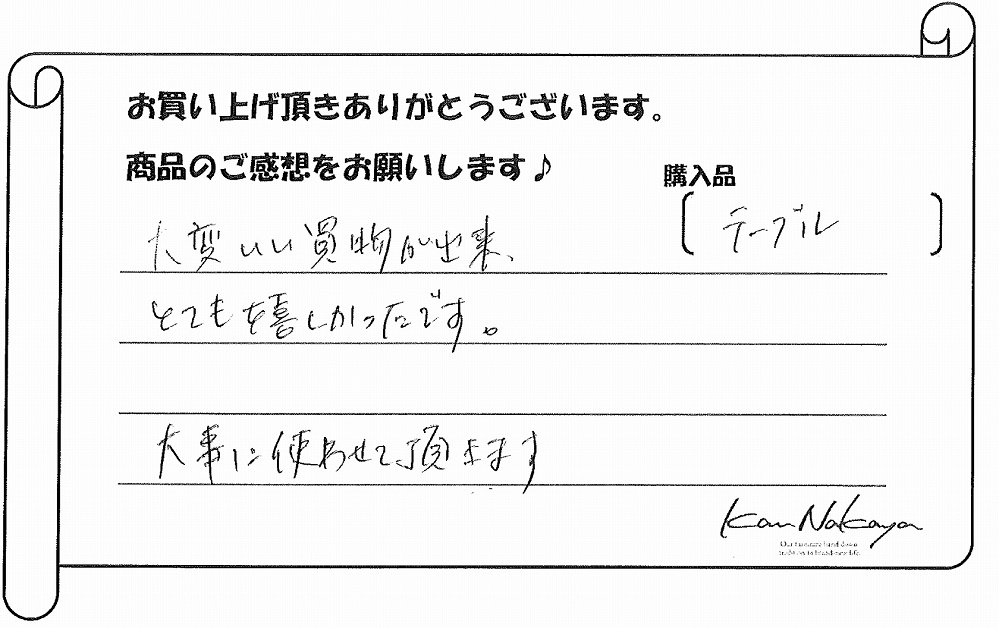 お買い上げ頂きありがとうございます。
商品のご感想をお願いします♪
購入品
テーブル
大変いい買物が出来、
とても嬉しかったです。
大事に使わせて頂きます
Kan Nakaya
Our furniture hand down
tradition to brand new life.